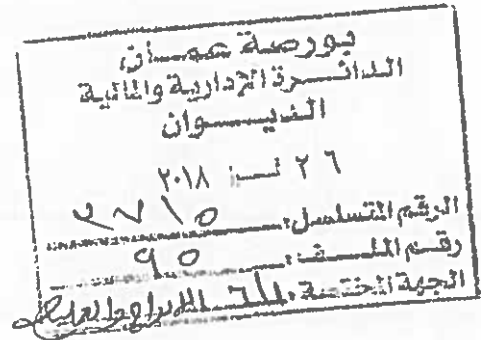 بورصة عمان
الدائرة الإدارية والمالية
الديوان
٢٦ ٢٠١٨
الرقم المتسلسل: ٢٧١٥
رقم الملف: ٩٥
الجهة المختصة: